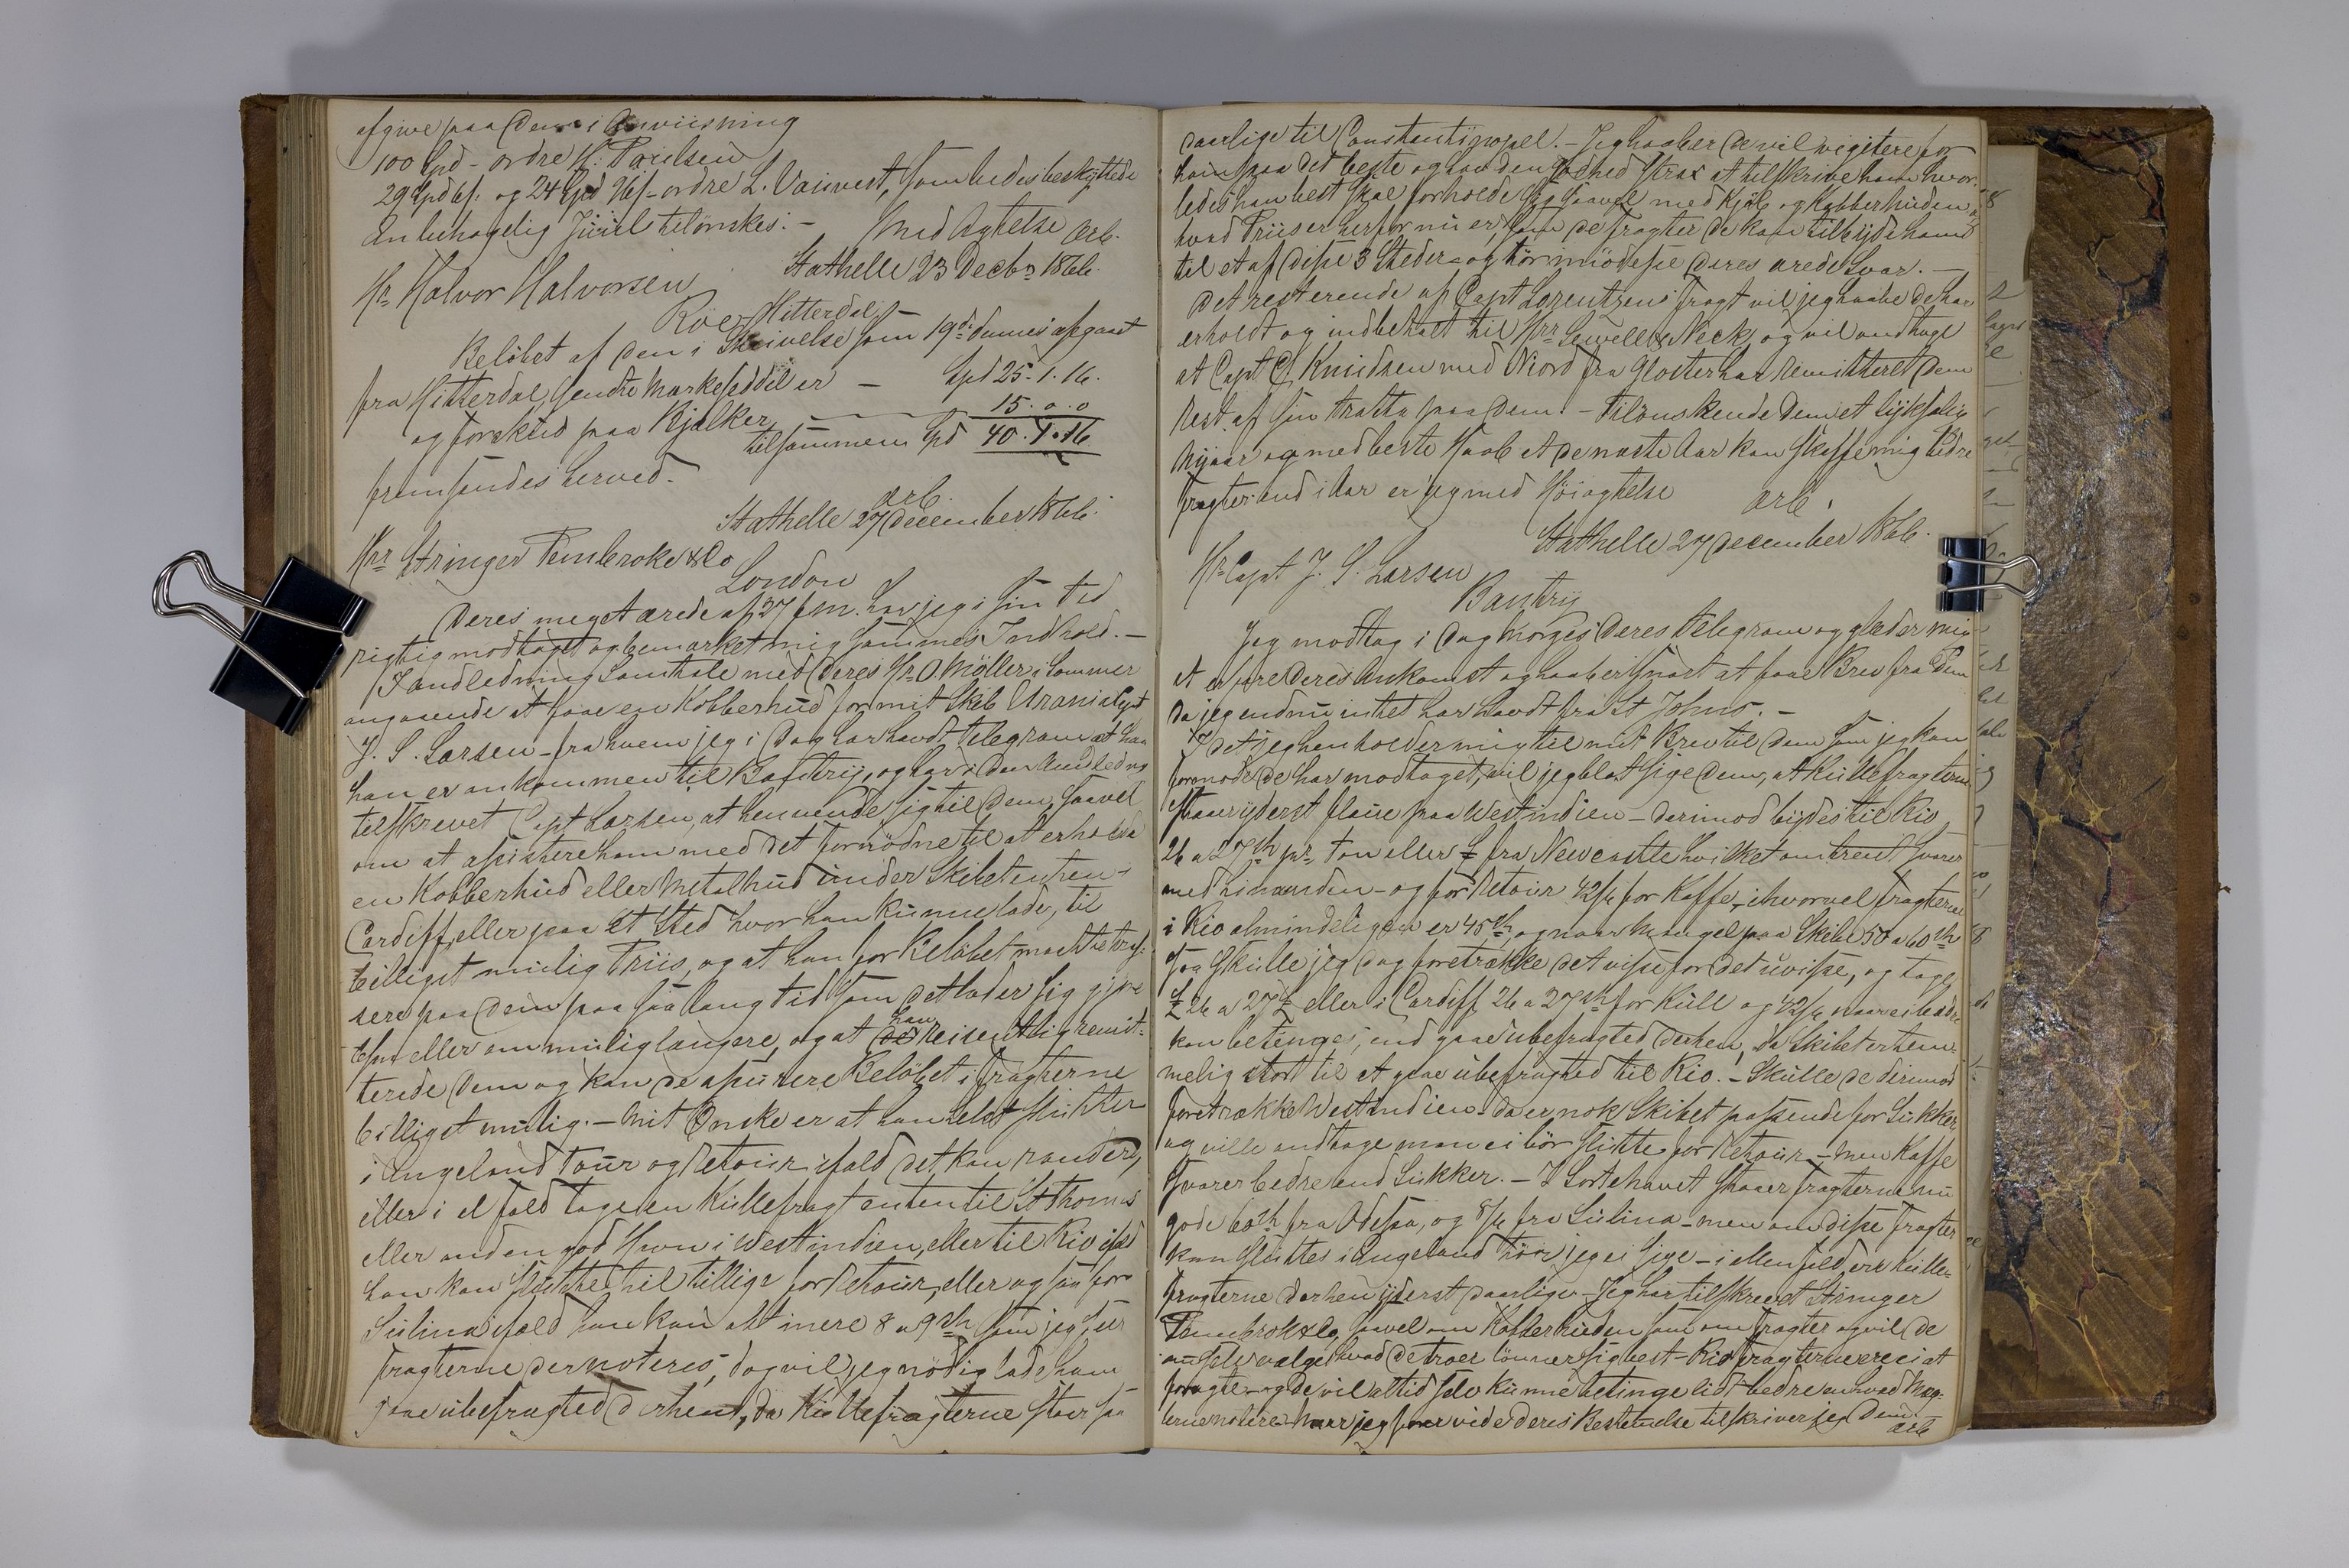 afgive paa Dem i Anviisning
100 Spd - ordre H. Poulsen
29 Spd og 24 Spd - ordre L. som bedes beskyttede
En behagelig Juul tilönskes. - Med Agtelse Arb.
Stathelle 23 Decbr 1866.
Hr Halvor Halvorsen
Roe Hitterdal
Beløbet af den i Skrivelse som 19de dennes afgaaet
fra Hitterdal sendte Markeseddel er - Spd 25. 1. 16.
og forskud paa Bjelker 15. 0. 0
tilsammen Spd 40. 1. 16
fremsendes herved.
Arb.
Stathelle 27 December 1866.
Hrr Stringer Pembroke & Co
London
Deres meget ærede af 27 f.m. har jeg i sin tid
rigtig modtaget og bemærket mig sammes Indhold. -
I andledning Samtale med Deres Hr O. Möller i Sommer
angaaende at faae en Kobberhud for mit Skib Urania Capt
J. S. Larsen - fra hvem jeg i Dag har havdt Telegram at han
han er ankommen til Bantry, og har i den Andledng
tilskrevet Capt Larsen, at henvende sig til Dem, saavel
om at assistere ham med det fornödne til at erholde
en Kobberhud eller Metalhud under Skibet enten i
Cardiff, eller paa et Sted hvor han kunne lade, til
billigst mulig Priis, og at han for Belöbet maatte tras-
sere paa Dem paa saa lang tid som det lader sig gjøre
eller om mulig længere, og at han Reisen remit-
terede Dem og kan De assurere Belöbet i fragterne
billigst mulig. - Mit Ønske er at han helst slutter
i Engeland tour og Retour ifald det kan rander,
eller i el fald tage en Kullefragt enten til St Thomas
eller anden god Havn i Westindien, eller til Rio ifald
han kan slutte til tillige for Retour, eller ogsaa for
Sulina ifald han kan 8 a 9 sh som jeg seer
fragterne der noteres, dog vil jeg nödig lade ham
gaae ubefragted derhen, da Kullefragterne staar saa
daarlige til Constantinopel. - Jeg haaber De vil vigitere for
ham paa det beste og have den Godhed strax at tilskrive ham hvor-
ledes han best skal forholde sig saavel med Kjøb og Kobberhuden,
hvad Priisen herfor nu er, som de fragter De kan tilbyde ham
til et af disse 3 Steder - og Deres ærede Svar. -
Det resterende af Capt Lorentzens fragt vil jeg haabe De har
erholdt og indbetalt til Hrr Sewell & Neck, og vil andtage
at Capt C. Knudsen med Niord fra Gloster har remitteret Dem
Rest af sin tratta paa Dem. - Tilönskende Dem et lyksalig
Nyaar og med beste Haab at De næste Aar kan skaffe mig bedre
fragter end i Aar er jeg med Höiagtelse Arb.
Stathelle 27 December 1866.
Hr Capt J. S. Larsen
Bantry
Jeg modtog i Dag Morges Deres Telegram og glæder mig
at erfare Deres Ankomst og haaber snart at faae Brev fra Dem
da jeg endnu intet har havdt fra St Johns. -
I det jeg henholder mig til mit Brev til Dem som jeg kan
formode De har modtaget, vil jeg blot sige Dem, at Kullefragterne
staar yderst flaue paa Westindien - derimod bydes til Rio
26 a 27 sh pr ton eller £ fra Newcastle hvilket omtrent svarer
med hinanden - og for Retour 42/6 for Kaffe, ihvorvel fragterne
i Rio almindeligen er 45 sh, og naar Mangel paa Skibe 50 a 60 sh
saa skulle jeg dog foretrække det visse for det uvisse, og tage
£ 26 a 27 £ eller i Cardiff 26 a 27 sh for Kull og 42/6 naar ei bedre
kan betinges, end gaae ubefragted derhen, da Skibet er tem-
melig stort til at gaae ubefragted til Rio. - Skulle De derimod
foretrække Westindien - da er nok Skibet passende for Sukker
og ville andtage man ei bör slutte for Retour - men Kaffe
svarer bedre end Sukker. - I Sortehavet staaer fragterne nu
gode 60 sh fra Odessa, og 8/6 fra Sulina - men om disse fragter
kan sluttes i Engeland tör jeg ei sige - i ellen fald, ere Kulle-
fragterne derhen yderst daarlige - Jeg har tilskrevet Stringer
Pembrok & Co, saavel om Kobberhuden som om fragter og vil De
nu selv vælge hvad De troer lönner sig best - Rio fragterne ere ei at
foragte - og De vil altid selv kunne betinge lidt bedre en hvad Mæg-
lerne notere - Naar jeg faaer vide Deres Bestemelse tilskriver jeg Dem.
Arb